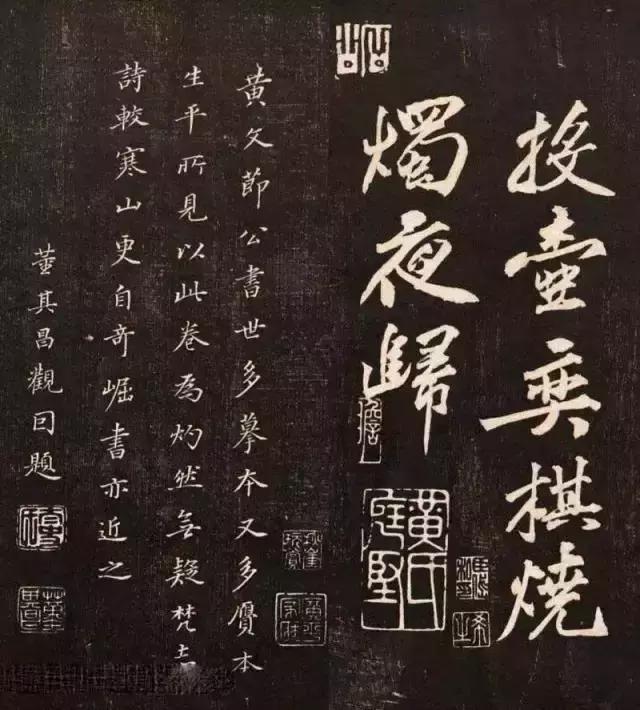 投壺奕棋燒
燭夜歸
黃氏庭堅
黃文節公書世多摹本又多贋本
生平所見以此卷為灼然無疑梵志
詩較寒山更自奇崛書亦近之
董其昌觀因題